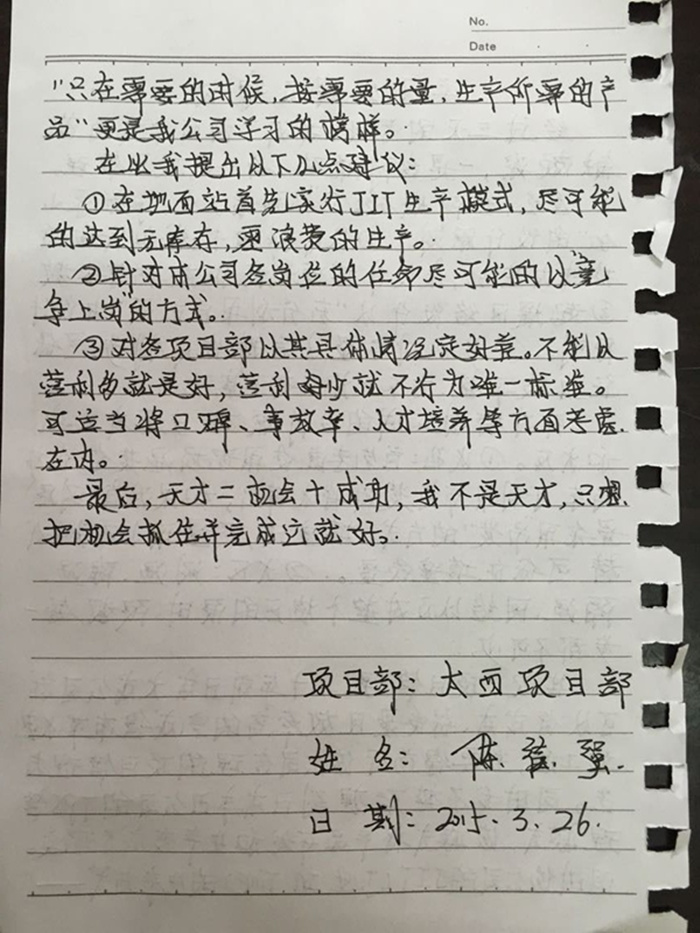 No.
Date
"只在需要的时候,按需要的量,生产所需的产
品"更是我公司学习的榜样。
在此我提出以下几点建议:
①在地面站首先实行JIT生产模式,尽可能
的达到无库存,零浪费的生产。
②针对本公司各岗位的任命尽可能的以"竞
争上岗"的方式。
③对各项目部以其具体情况定好差。不能以
营利多就是好,营利少就不行为唯一标准。
可适当将口碑、事故率、人才培养等方面考虑
在内。
最后,天才=机会+成功,我不是天才,只想
把机会抓住并完成这就好。
项目部:太西项目部
姓名:陈 强
日期:2015.3.26.